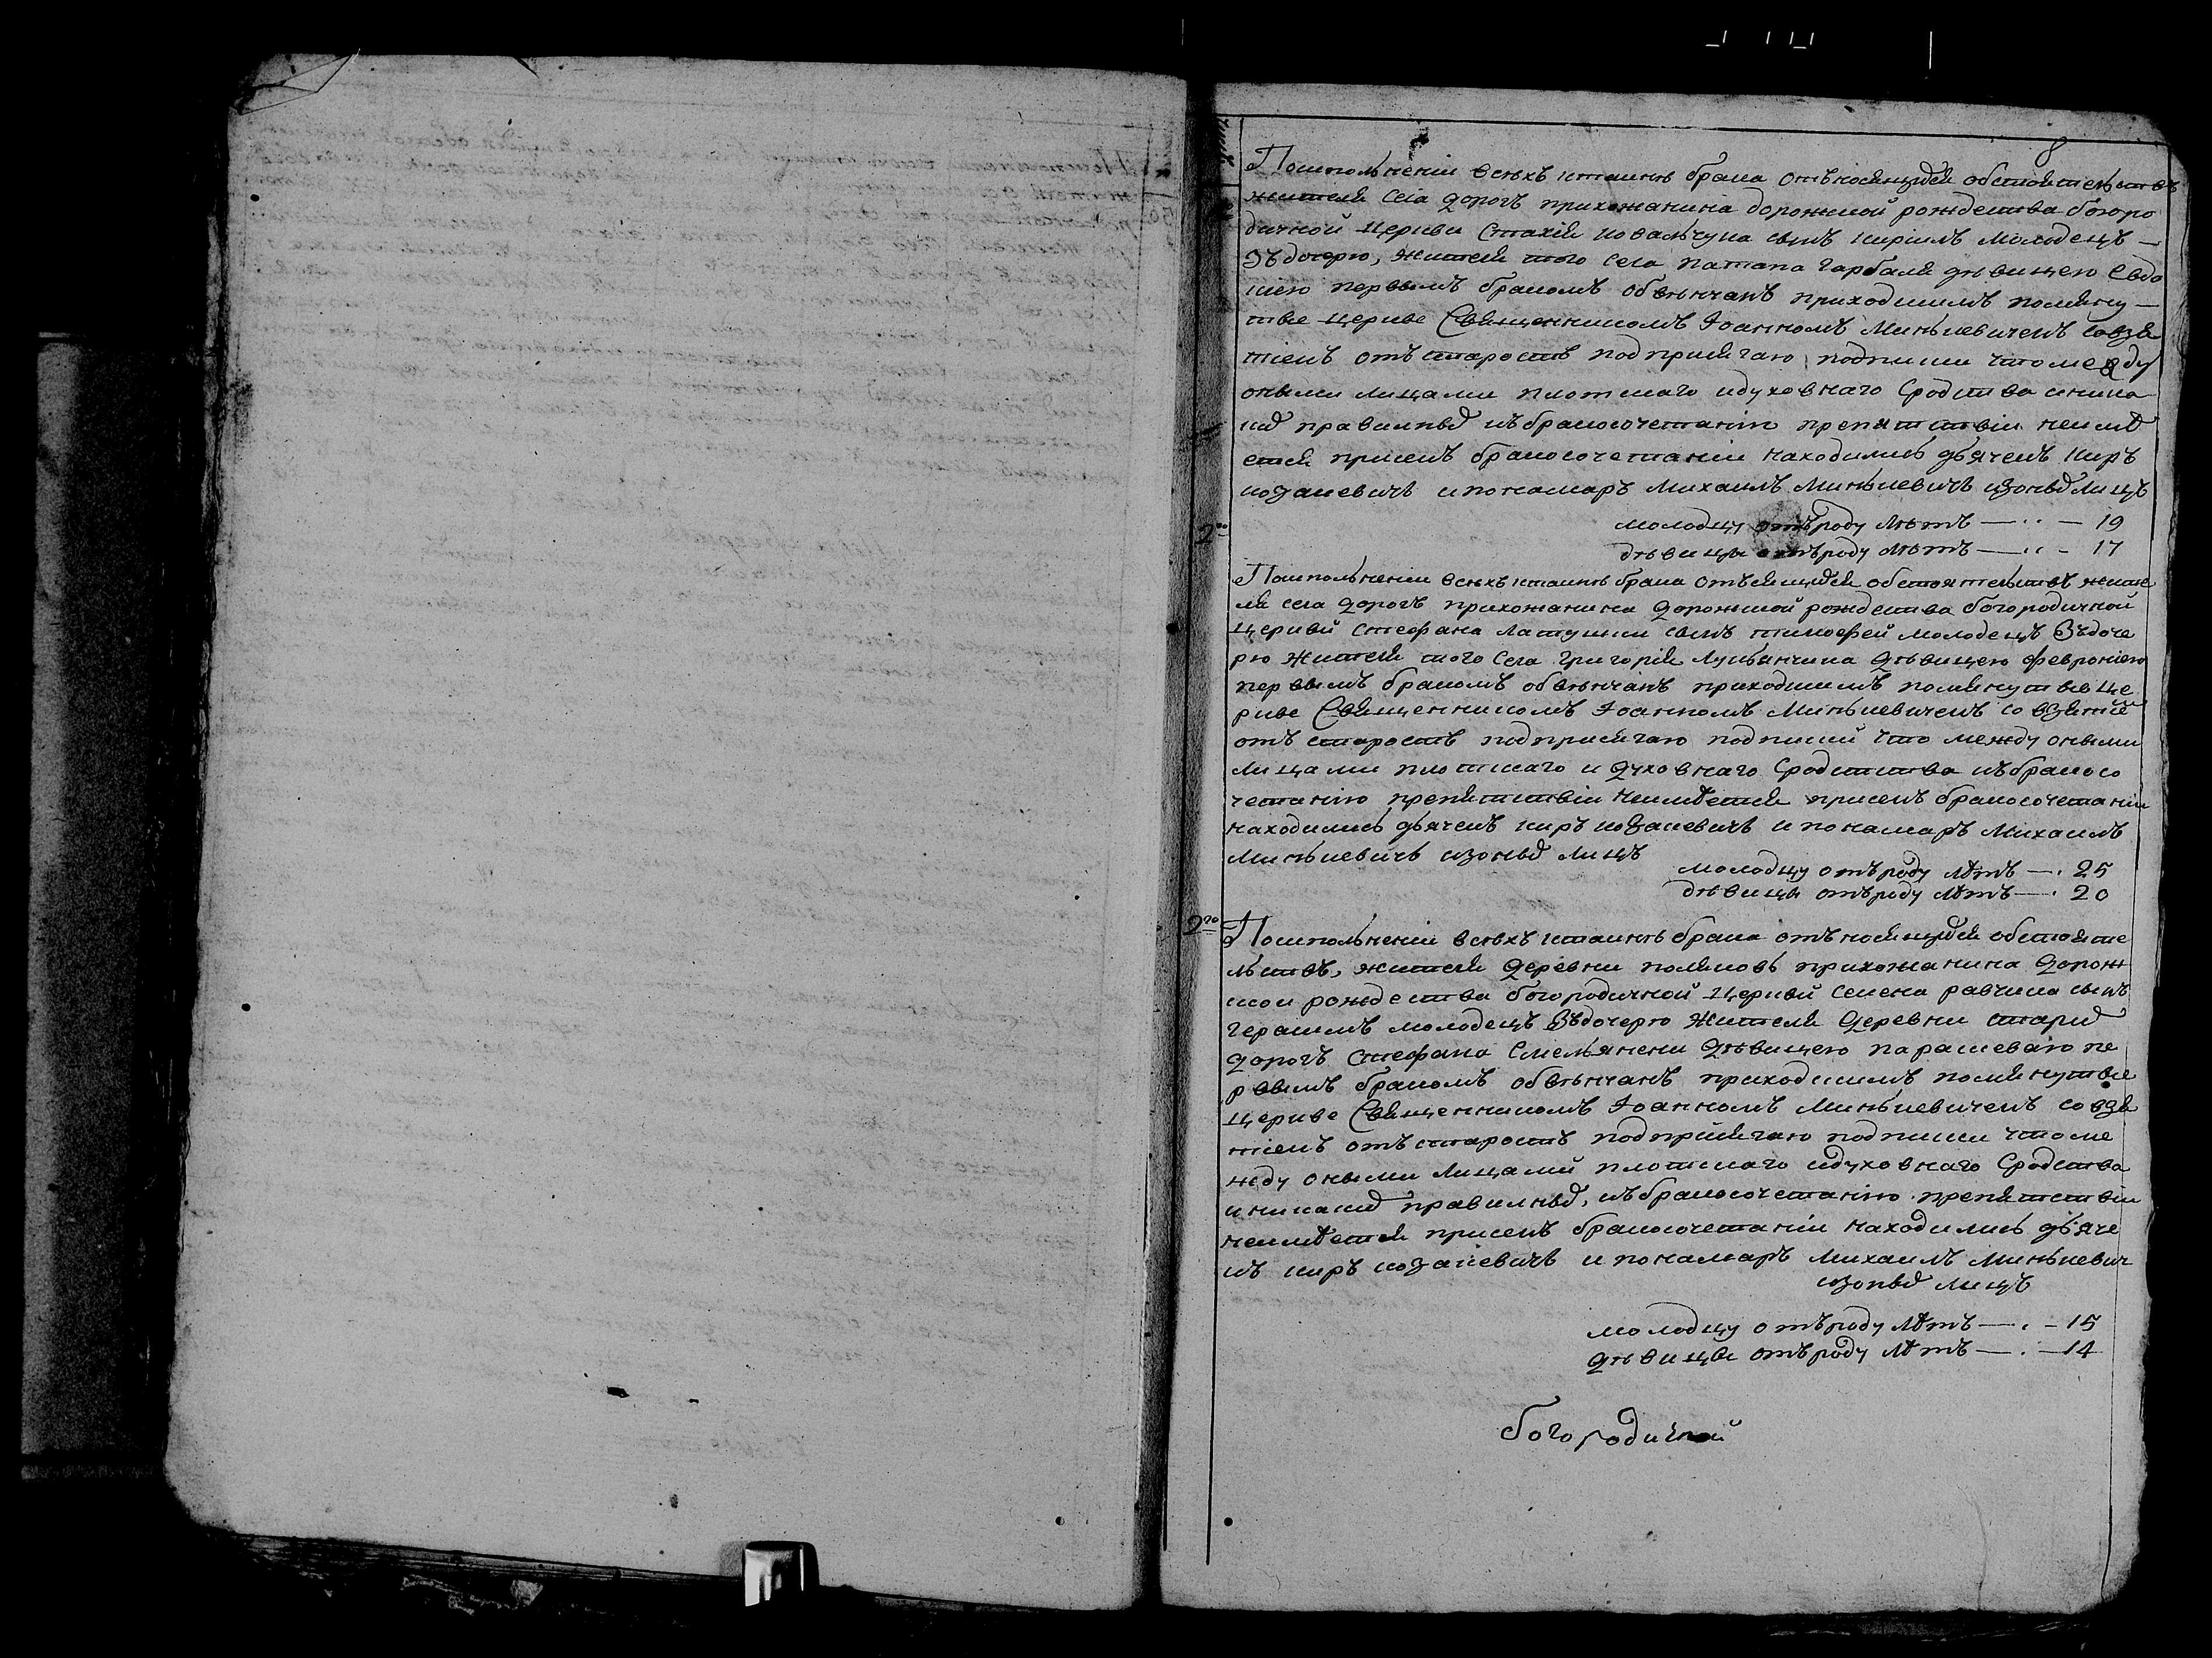 8
Поисполненіи всѣхъ ктаинѣ брака отъносящихся обстоятельствъ
жителя села дорогъ прихожанина дорожской рождества богоро
дичной церкви Стахія ковальчука сынъ кирилъ молодецъ —
Зъдочерю, жителя того села патапа гарбаля дѣвицею Евдо
кіею первымъ бракомъ обвѣнчанъ приходскимъ помяну —
твіе церкве Священникомъ Іоанномъ Минькевичемъ совзя
тіемъ отъ старостъ подприсягаю подписки что между
оными лицами плотскаго идуховнаго Сродства иника
кихъ правилныхъ къбракосочетанію препятствіи неимѣ
ется присемъ бракосочетаніи находились дьячекъ киръ
козакевичъ ипонамаръ Михаилъ Минькевичъ изоныхъ лицъ
молодцу отъроду лѣтъ — 19
дѣвицы отъроду лѣтъ — 17
2го
Поисполненіи всѣхъ ктаинѣ брака отъсящихся обстоятельствъ жите
ля села дорогъ прихожанина дорожской рождества богородичной
церквй Стефана латушки сынъ тимофей молодецъ Зъдоче
рю жителя того села григорія лукьянчика дѣвицею февроніею
первымъ бракомъ обвѣнчанъ приходскимъ помянутвіе це
ркве Священникомъ Іоанномъ Минькевичемъ со взятіе
отъ старостъ подприсягаю подпискй что между оными
лицами плотскаго и духовнаго Сродстства къбракосо
четанію препятствіи неимѣется присемъ бракосочетаніи
находились дьячекъ киръ козакевичъ и понамаръ Михаилъ
Минькевичъ изоныхъ лицъ
молодцу отъроду лѣтъ — 25
дѣвицы отъроду лѣтъ — 20
9го
Поисполненіи всѣхъ ктаинѣ брака отъносящихся обстояте
льствъ, жителя деревни поликовъ прихожанина дорож
ской рождества богородичной церквй Семена равчика сынъ
герасимъ молодецъ Зъдочерю жителя деревни старихъ
дорогъ Стефана Емельянени дѣвицею параскевію пе
рвымъ бракомъ обвѣнчанъ приходскимъ помянутвіе
церкве Священникомъ Іоанномъ Минькевичемъ со взя
тіемъ отъ старостъ подприсягаю подписки что ме
жду оными лицами плотскаго идуховнаго Сродства
иникакихъ правилныхъ, къбракосочетанію препятствіи
неимѣется присемъ бракосочетаніи находились дьяче
къ киръ козакевичъ и понамаръ Михаилъ Минькевич
изоныхъ лицъ
молодцу отъроду лѣтъ — 15
дѣвицы отъроду лѣтъ — 14
богородичной